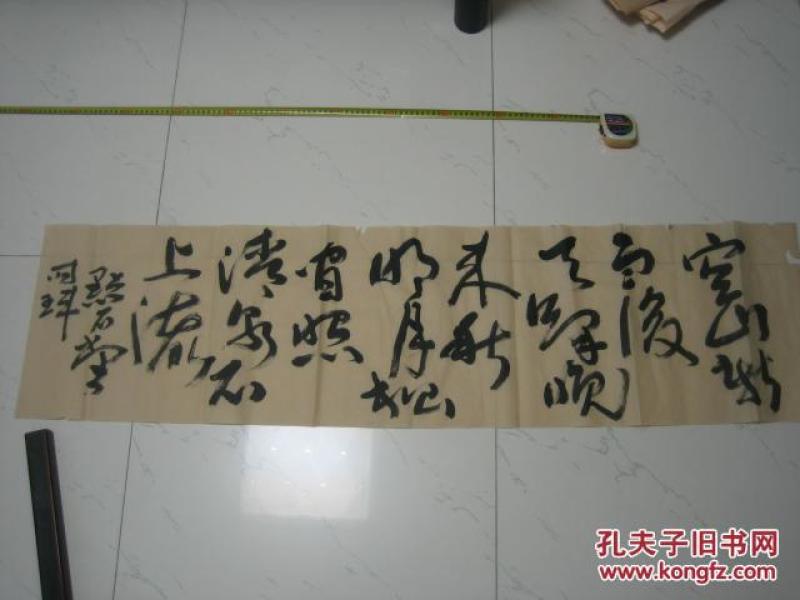 空山新
雨後
天氣晚
来秋
明月松
間照
清泉石
上流
點石堂
孔夫子旧书网
www.kongfz.com